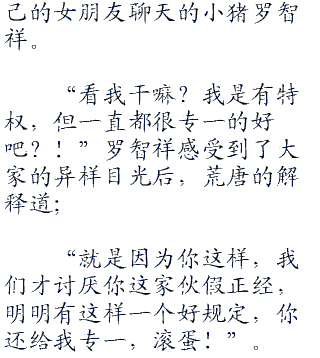 己的女朋友聊天的小猪罗智
祥。
“看我干嘛？我是有特
权，但一直都很专一的好
吧？！”罗智祥感受到了大
家的异样目光后，荒唐的解
释道；
“就是因为你这样，我
们才讨厌你这家伙假正经，
明明有这样一个好规定，你
还给我专一，滚蛋！”。